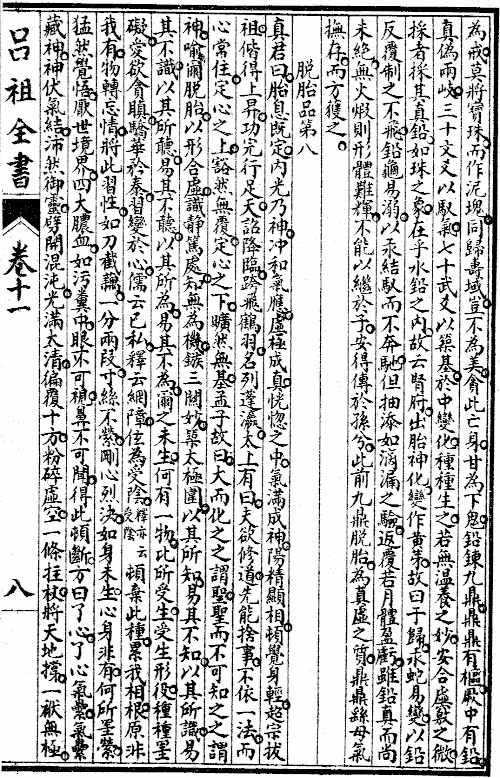 為戒莫將寶珠而作泥塊同歸壽域豈不為美貪此亡身甘為下鬼鉛鍊九鼎鼎鼎有樞厥中有鉛
真偽兩岐三十文爻以馭氣七十武爻以築基於中變化種種生之若無溫養之妙安合虛數之微
採者採其真鉛如珠之象在乎水鉛之內故云腎府出胎神化變作黃茅故曰于歸汞蛇易變以鉛
反覆制之不飛鉛龜易溺以汞結馭而不奔馳但抽添如滴漏之驗返覆若月體盈虧雖鉛真而尚
未絶無火煅則形體難輝不能以繼於子安得傳於孫兮此前九鼎脱胎為真虛之質鼎鼎絲母氣
撫存而方獲之
脱胎品第八
真君曰胎息既定内光乃神冲和氣應虛極成真恍惚之中氣滿成神陽精顯相頓覺身輕起宗拔
祖偕得上昇功完行足天詔降臨跨飛鶴羽名列蓬瀛太上有曰夫欲修道先能捨事不依一法而
心常住定心之上豁然無覆定心之下曠然無基孟子故曰大而化之之謂聖聖而不可知之之謂
神喻爾脱胎以形合虛識靜篤處知無為機鏃三關妙築太極圍以其所知易其不知以其所識易
其不識以其所聽易其不聽以其所為易其不為爾之未生何有一物比所受生受生形役種種墨
礙愛欲貪瞋驕華於奉習變於心儒云己私釋云網障伭為受陰釋亦云受陰頓棄此種累我相根原非
我有物轉忘情將此習性如刀截藕一分兩段寸絲不縈剛心烈決如身未生心身非有何所墨縈
猛然覺悟厭世境界四大膿血如污糞中眼不可視鼻不可聞得此頓斷方曰了心了心氣縈氣縈
藏神神伏氣結沛然御靈劈開混沌光滿太清徧覆十方粉碎虛空一條拄杖將天地撐一獄無極
呂祖全書
卷十一
八